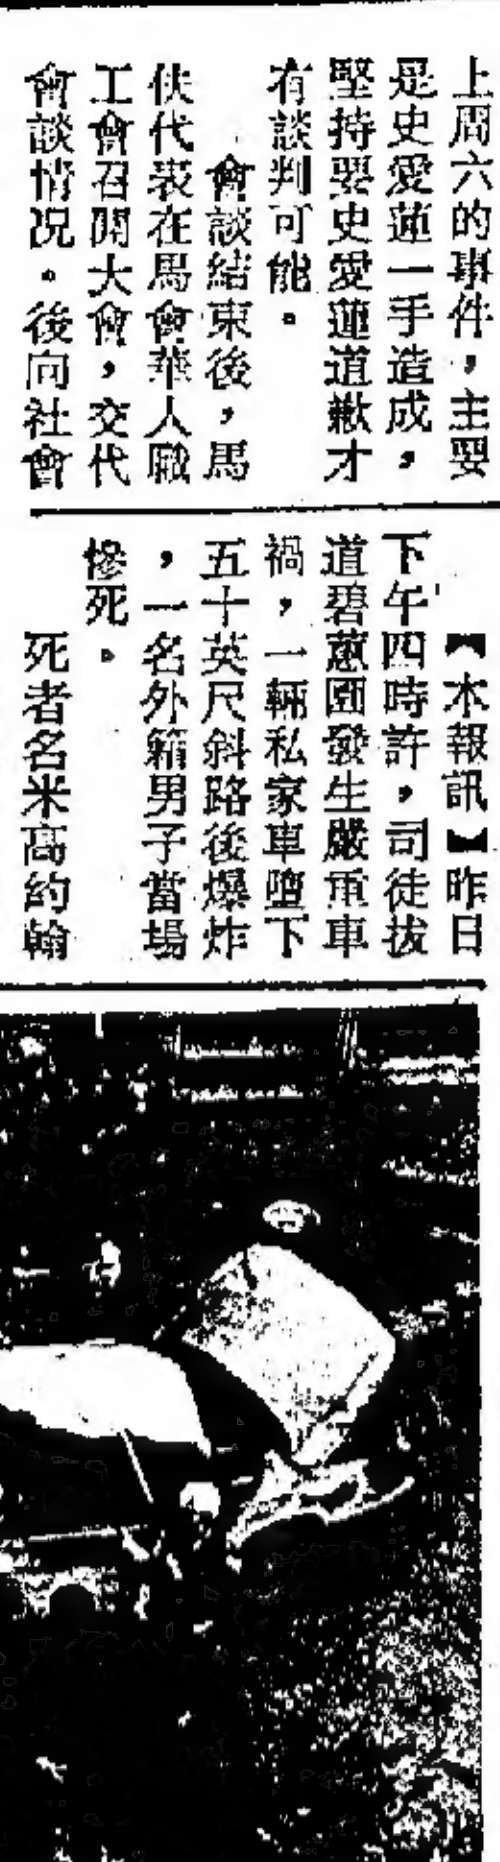 上周六的事件，主要
是史愛蓮一手造成，
堅持要史愛蓮道歉才
有談判可能。
會談結束後，馬
伕代表在馬會華人職
工會召開大會，交代
會談情况。後向社會
【本報訊】昨日
下午四時許，司徒拔
道碧蕙園發生嚴重車
禍，一輛私家車墮下
五十英尺斜路後爆炸
，一名外籍男子當場
慘死。
死者名米高約翰